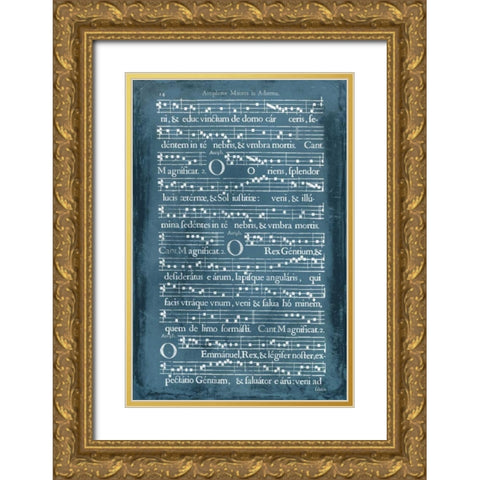 14 Antiphonæ Maiores in Aduentu.
ni, & educ vinctum de domo cár ceris, se-
dentem in té nebris, & vmbra mortis. Cant.
Antiph.
Magnificat. 2. O Oriens, splendor
lucis æternæ, & Sol iustitiæ: veni, & illú-
mina sedéntes in té nebris, & vmbra mortis.
Antiph.
Cant. Magnificat. 2. O Rex Géntium, &
desideratus eárum, lapísque angularis, qui
facis vtráque vnum, veni & salua hó minem,
quem de limo formásti. Cant. Magnificat. 2.
Antiph.
O Emmánuel, Rex, & légifer noster, ex-
pectátio Géntium, & saluátor eárũ: veni ad